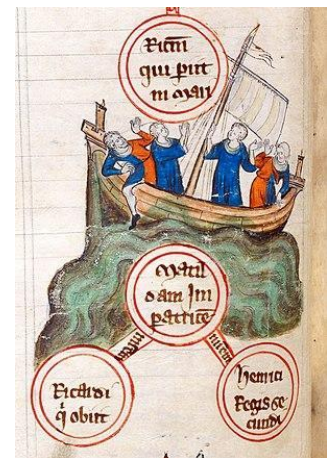 qui piit
in mari
Matil
dam Im
patrice
Ricardi
q̇ obiit
Henrici
Regis se
cundi